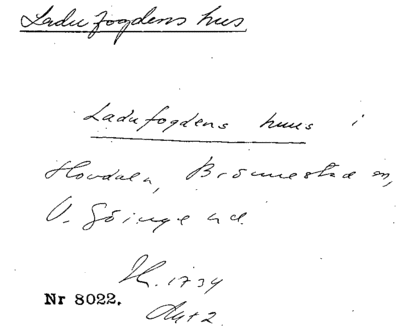 Ladufogdens hus
Ladufogdens huus i
Hovdala, Brönnestad sn,
V. Göinge hd.
1734
Nr 8022.